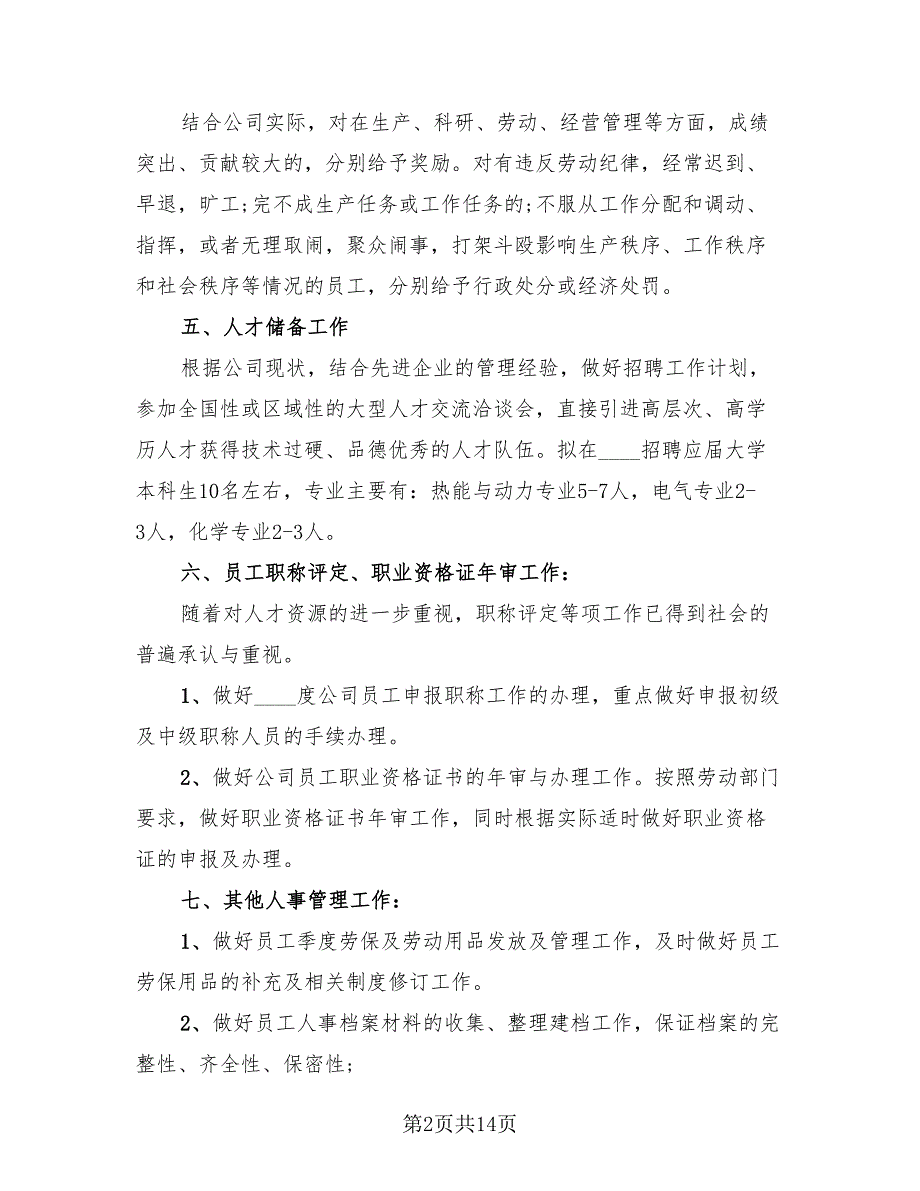 结合公司实际，对在生产、科研、劳动、经营管理等方面，成绩
突出、贡献较大的，分别给予奖励。对有违反劳动纪律，经常迟到、
早退，旷工;完不成生产任务或工作任务的;不服从工作分配和调动、
指挥，或者无理取闹，聚众闹事，打架斗殴影响生产秩序、工作秩序
和社会秩序等情况的员工，分别给予行政处分或经济处罚。
五、人才储备工作
根据公司现状，结合先进企业的管理经验，做好招聘工作计划，
参加全国性或区域性的大型人才交流洽谈会，直接引进高层次、高学
历人才获得技术过硬、品德优秀的人才队伍。拟在____招聘应届大学
本科生10名左右，专业主要有：热能与动力专业5-7人，电气专业2-
3人，化学专业2-3人。
六、员工职称评定、职业资格证年审工作：
随着对人才资源的进一步重视，职称评定等项工作已得到社会的
普遍承认与重视。
1、做好____度公司员工申报职称工作的办理，重点做好申报初级
及中级职称人员的手续办理。
2、做好公司员工职业资格证书的年审与办理工作。按照劳动部门
要求，做好职业资格证书年审工作，同时根据实际适时做好职业资格
证的申报及办理。
七、其他人事管理工作：
1、做好员工季度劳保及劳动用品发放及管理工作，及时做好员工
劳保用品的补充及相关制度修订工作。
2、做好员工人事档案材料的收集、整理建档工作，保证档案的完
整性、齐全性、保密性;
第2页共14页